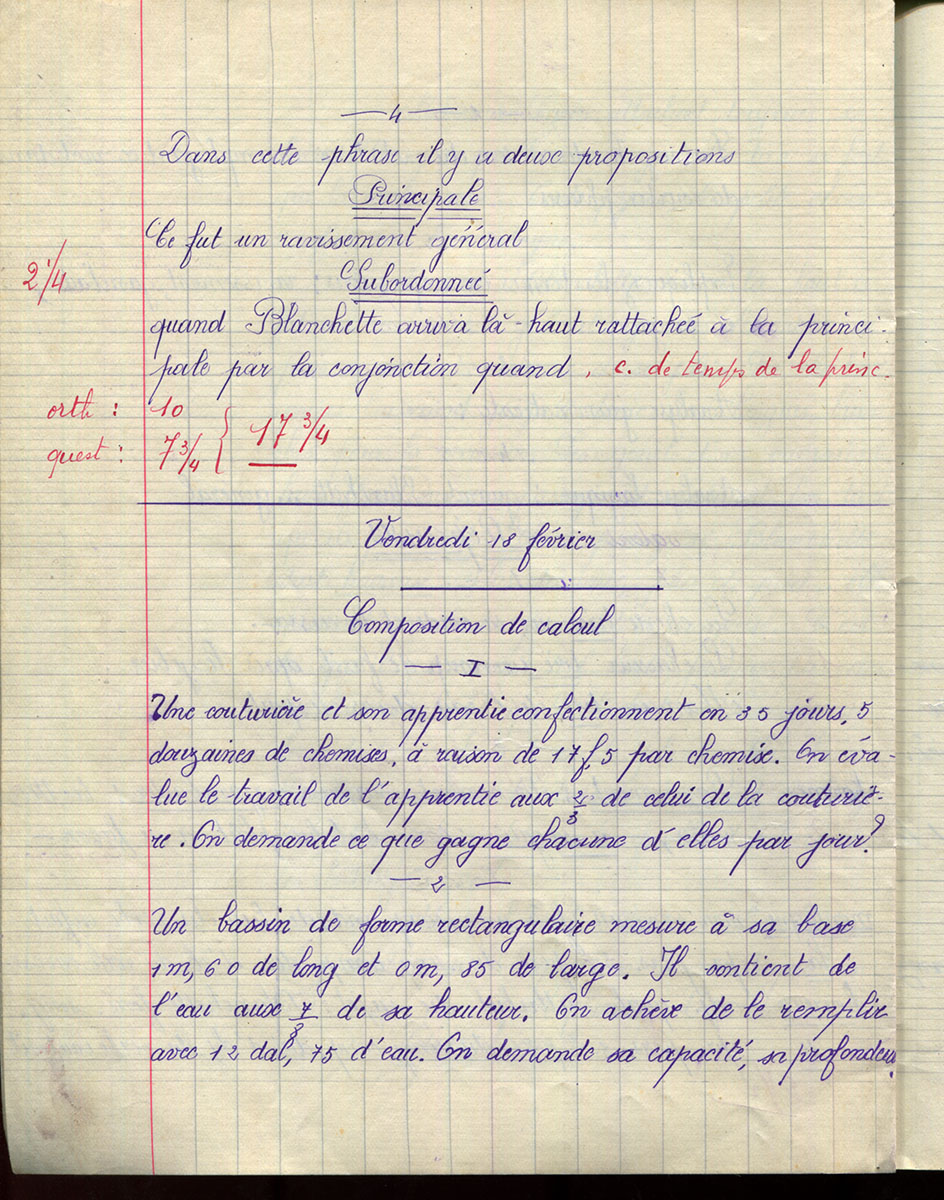 — 4 —
Dans cette phrase il y a deux propositions
Principale
Ce fut un ravissement général
2 1/4
Subordonnée
quand Blanchette arriva là-haut rattachée à la princi-
pale par la conjonction quand, c. de temps de la princ.
orth : 10
quest : 7 3/4 } 17 3/4
Vendredi 18 février
Composition de calcul
— I —
Une couturière et son apprentie confectionnent en 35 jours, 5
douzaines de chemises, à raison de 17f,5 par chemise. On éva-
lue le travail de l'apprentie aux 2/3 de celui de la couturiè-
re. On demande ce que gagne chacune d'elles par jour?
— 2 —
Un bassin de forme rectangulaire mesure à sa base
1m,60 de long et 0m,85 de large. Il contient de
l'eau aux 7/8 de sa hauteur. On achève de le remplir
avec 12 dal, 75 d'eau. On demande sa capacité, sa profondeur.